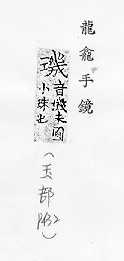 龍龕手鏡
璣
音機圓
小珠也
(玉部
)